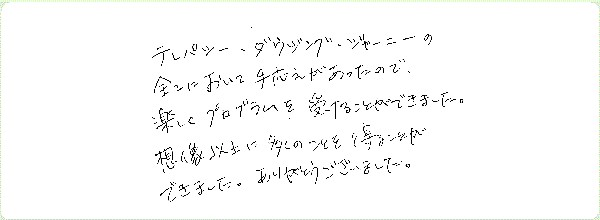 テレパシー、ダウジング、ジャーニーの
全てにおいて手応えがあったので、
楽しくプログラムを受けることができました。
想像以上に多くのことを得ることが
できました。ありがとうございました。